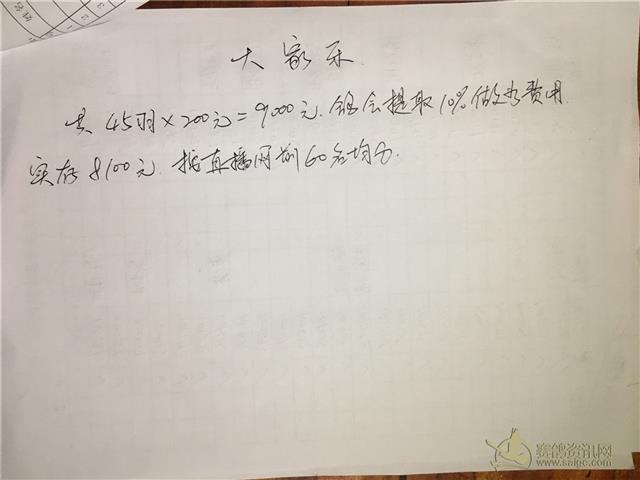 大家乐
共45羽×200元=9000元.鸽会提取10%做为费用
实存8100元.按直播网前60名均分.
赛鸽资讯网
www.saige.com